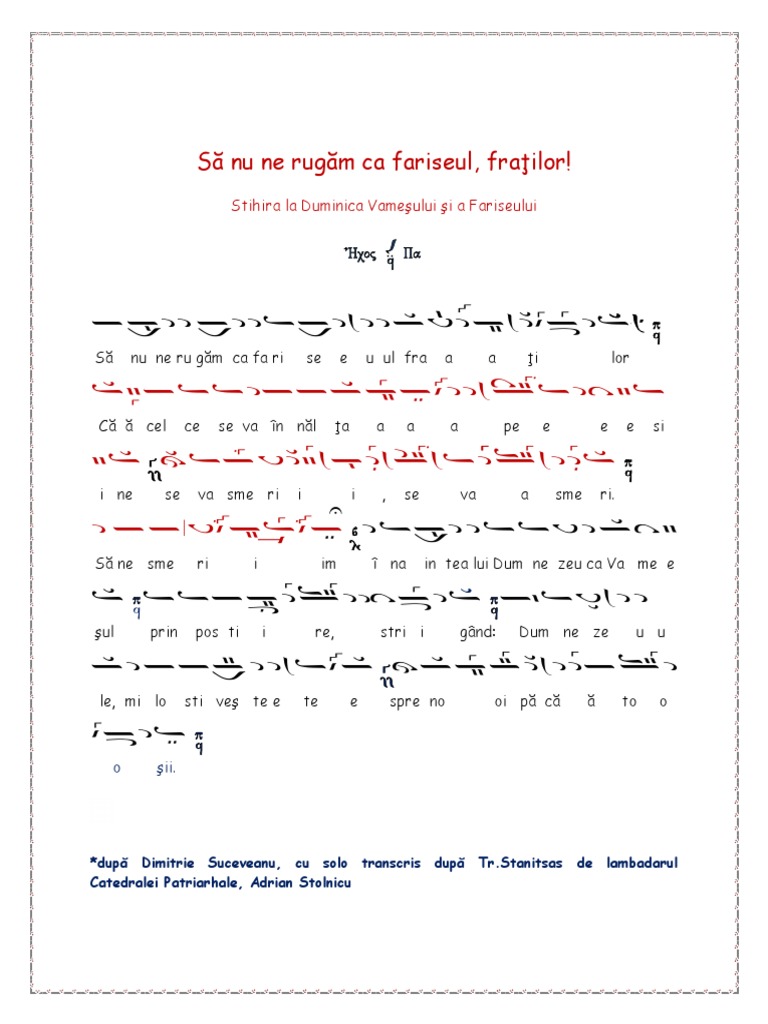 Să nu ne rugăm ca fariseul, fraţilor!
Stihira la Duminica Vameşului şi a Fariseului
Ἦχος Πα
Să nu ne ru găm ca fa ri se e u ul fra a a ţi lor
Că ă cel ce se va în năl ţa a a a pe e e e si
i ne se va sme ri i i , se va a sme ri.
Să ne sme ri i im î na in tea lui Dum ne zeu ca Va me e
şul prin pos ti i re, stri i gând: Dum ne ze u u
le, mi lo sti veş te e te e spre no oi pă că ă to o
o şii.
*după Dimitrie Suceveanu, cu solo transcris după Tr.Stanitsas de lambadarul
Catedralei Patriarhale, Adrian Stolnicu